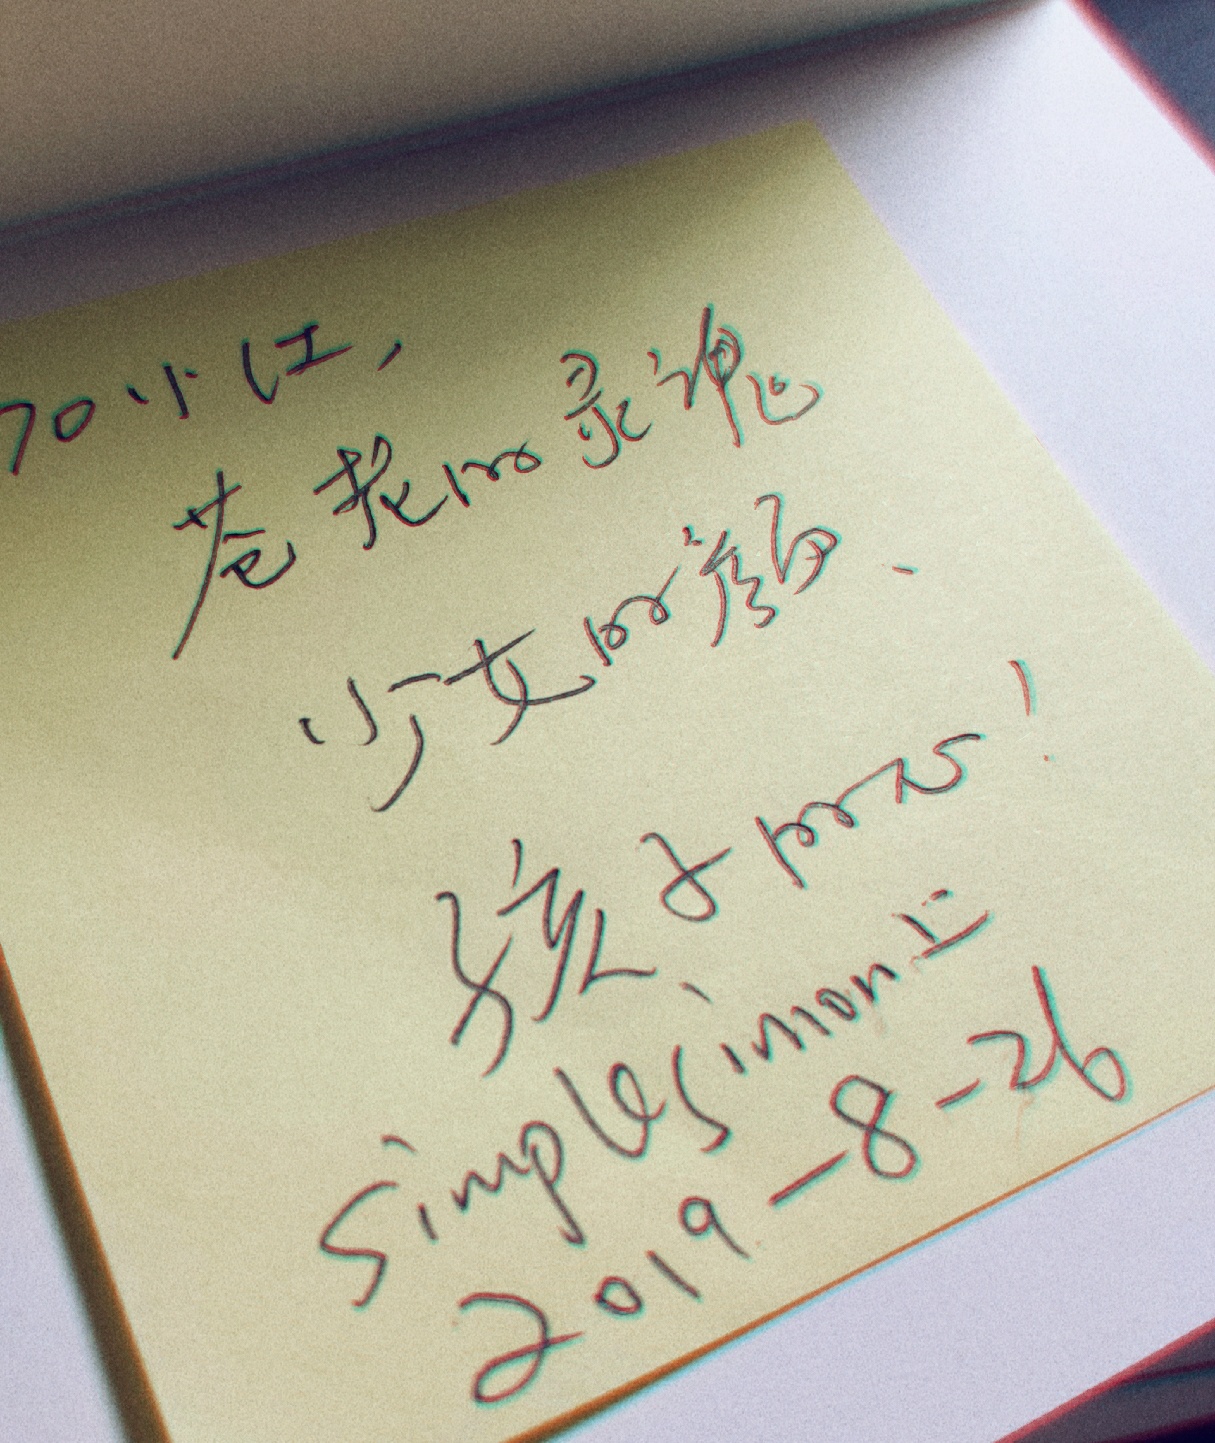 70小红,
苍老的灵魂
少女的颜、
孩子的心!
simplesimon上
2019-8-26